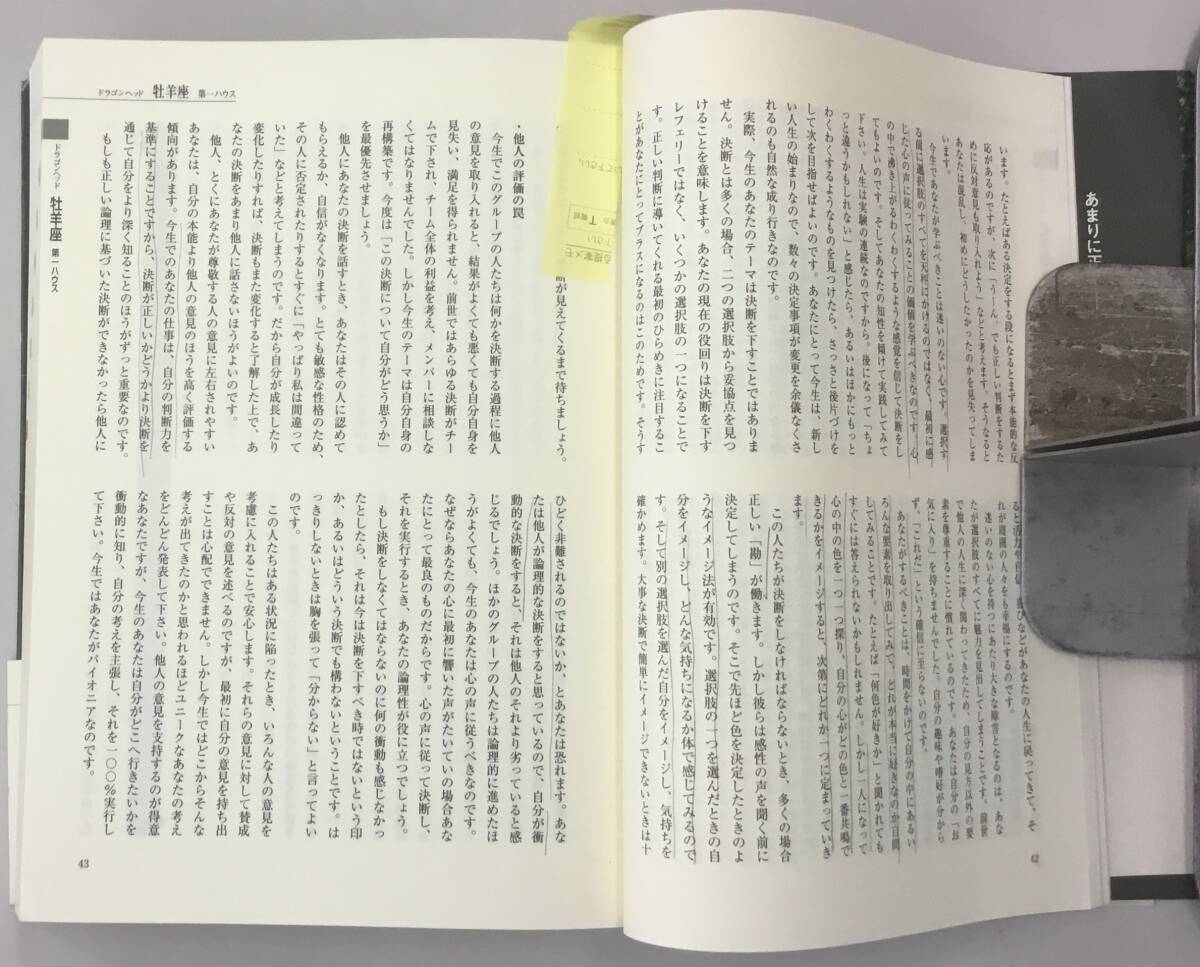 あまりに正
います。たとえばある決定をする段になるとまず本能的な反
応があるのですが、次に「うーん。でも正しい判断をするた
めに反対意見も取り入れよう」などと考えます。そうなると
あなたは混乱し、初めにどうしたかったのかを見失ってしま
います。
今生であなたが学ぶべきことは迷いのない心です。選択す
る前に選択肢のすべてを天秤にかけるのではなく、最初に感
じた心の声に従ってみることの価値を学ぶべきなのです。心
の中で沸き上がるわくわくするような感覚を信じて決断をし
てもよいのです。そしてあなたの知性を傾けて実践してみて
下さい。人生は実験の連続なのですから。後になって「ちょ
っと違うかもしれない」と感じたら、あるいはほかにもっと
わくわくするようなものを見つけたら、さっさと後片づけを
して次を目指せばよいのです。あなたにとって今生は、新し
い人生の始まりなので、数々の決定事項が変更を余儀なくさ
れるのも自然な成り行きなのです。
実際、今生のあなたのテーマは決断を下すことではありま
せん。決断とは多くの場合、二つの選択肢から妥協点を見つ
けることを意味します。あなたの現在の役回りは決断を下す
レフェリーではなく、いくつかの選択肢の一つになることで
す。正しい判断に導いてくれる最初のひらめきに注目するこ
とがあなたにとってプラスになるのはこのためです。そうす
ると活力や自信、喜びなどがあなたの人生に戻ってきて、そ
れが周囲の人々をも幸福にするのです。
迷いのない心を持つにあたり大きな障害となるのは、あな
たが選択肢のすべてに魅力を見出してしまうことです。前世
で他人の人生に深く関わってきたため、自分の見方以外の要
素を尊重することに慣れているのです。あなたは自分の「お
気に入り」を持ちませんでした。自分の趣味や嗜好が分から
ず、「これだ」という確信に至らないのです。
あなたがするべきことは、時間をかけて自分の中にあるい
ろんな要素を取り出してみて、どれが本当に好きなのか自問
してみることです。たとえば「何色が好きか」と聞かれても
すぐには答えられないかもしれません。しかし一人になって
心の中の色を一つ一つ探り、自分の心がどの色と一番共鳴で
きるかをイメージすると、次第にどれか一つに定まっていき
ます。
この人たちが決断をしなければならないとき、多くの場合
正しい「勘」が働きます。しかし彼らは感性の声を聞く前に
決定してしまうのです。そこで先ほど色を決定したときのよ
うなイメージ法が有効です。選択肢の一つを選んだときの自
分をイメージし、どんな気持ちになるか体で感じてみるので
す。そして別の選択肢を選んだ自分をイメージし、気持ちを
確かめます。大事な決断で簡単にイメージできないときは十
42
ドラゴンヘッド 牡羊座 第一ハウス
断が見えてくるまで待ちましょう。
・他人の評価の罠
今生でこのグループの人たちは何かを決断する過程に他人
の意見を取り入れると、結果がよくても悪くても自分自身を
見失い、満足を得られません。前世ではあらゆる決断がチー
ムで下され、チーム全体の利益を考え、メンバーに相談しな
くてはなりませんでした。しかし今生のテーマは自分自身の
再構築です。今度は「この決断について自分がどう思うか」
を最優先させましょう。
他人にあなたの決断を話すとき、あなたはその人に認めて
もらえるか、自信がなくなります。とても敏感な性格のため、
その人に否定されたりするとすぐに「やっぱり私は間違って
いた」などと考えてしまうのです。だから自分が成長したり
変化したりすれば、決断もまた変化すると了解した上で、あ
なたの決断をあまり他人に話さないほうがよいのです。
他人、とくにあなたが尊敬する人の意見に左右されやすい
あなたは、自分の本能より他人の意見のほうを高く評価する
傾向があります。今生でのあなたの仕事は、自分の判断力を
基準にすることですから、決断が正しいかどうかより決断を
通じて自分をより深く知ることのほうがずっと重要なのです。
もしも正しい論理に基づいた決断ができなかったら他人に
ひどく非難されるのではないか、とあなたは恐れます。あな
たは他人が論理的な決断をすると思っているので、自分が衝
動的な決断をすると、それは他人のそれより劣っていると感
じるでしょう。ほかのグループの人たちは論理的に進めたほ
うがよくても、今生のあなたは心の声に従うべきなのです。
なぜならあなたの心に最初に響いた声がたいていの場合あな
たにとって最良のものだからです。心の声に従って決断し、
それを実行するとき、あなたの論理性が役に立つでしょう。
もし決断をしなくてはならないのに何の衝動も感じなかっ
たとしたら、それは今は決断を下すべき時ではないという印
か、あるいはどういう決断でも構わないということです。は
っきりしないときは胸を張って「分からない」と言ってよい
のです。
この人たちはある状況に陥ったとき、いろんな人の意見を
考慮に入れることで安心します。それらの意見に対して賛成
や反対の意見を述べるのですが、最初に自分の意見を持ち出
すことは心配でできません。しかし今生ではどこからそんな
考えが出てきたのかと思われるほどユニークなあなたの考え
をどんどん発表して下さい。他人の意見を支持するのが得意
なあなたですが、今生のあなたは自分がどこへ行きたいかを
衝動的に知り、自分の考えを主張し、それを一〇〇％実行し
て下さい。今生ではあなたがパイオニアなのです。
ドラゴンヘッド 牡羊座 第一ハウス
43